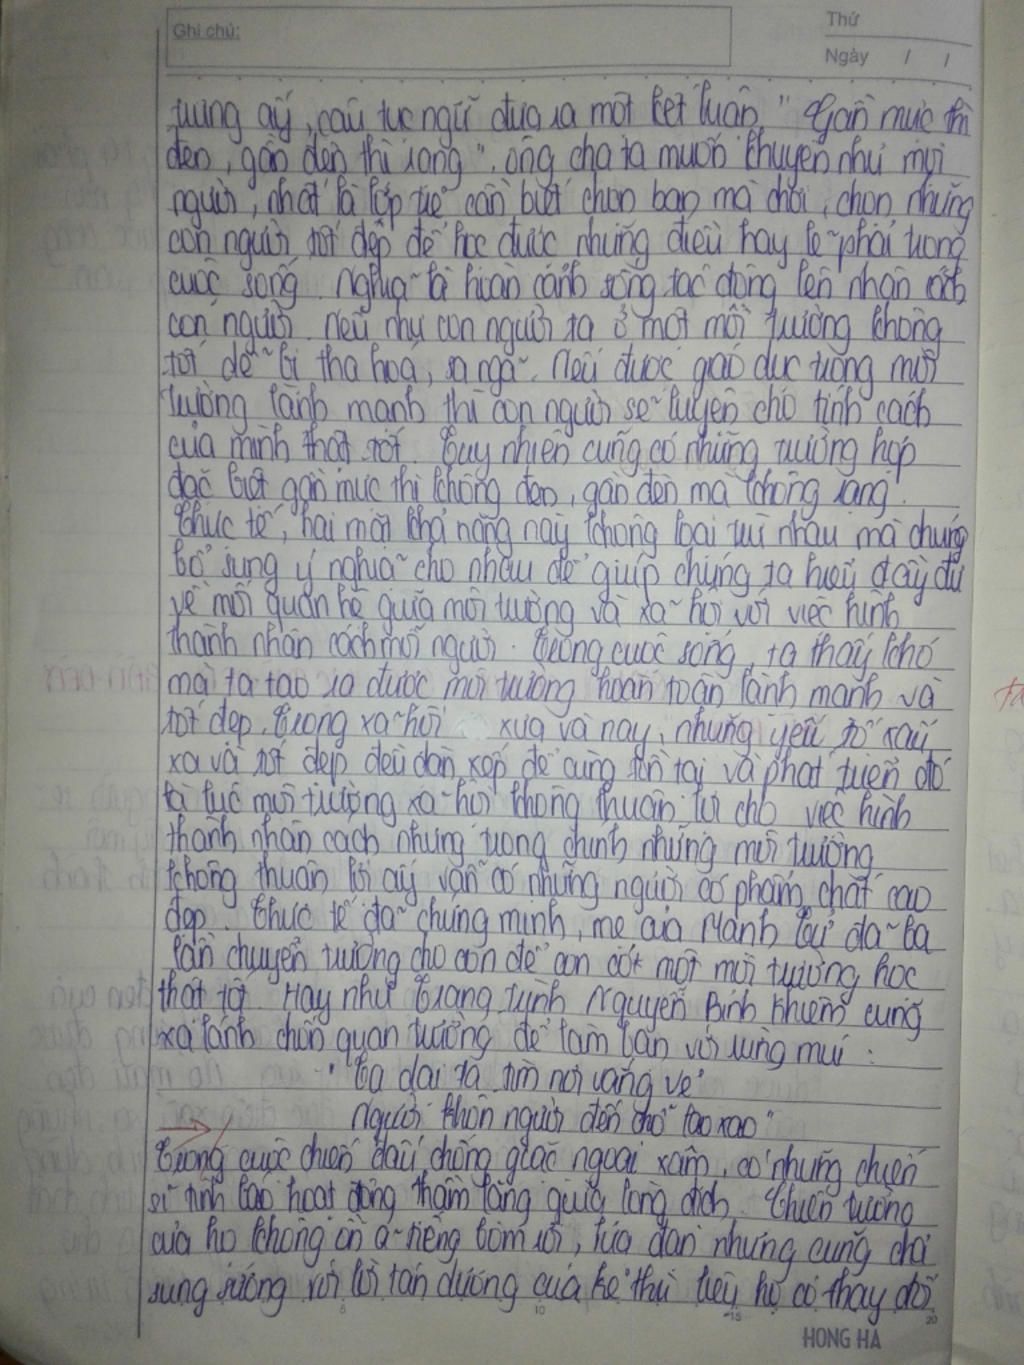 Ghi chú:
Thứ
Ngày / /
tượng ấy, câu tục ngữ đưa ra một kết luận " Gần mực thì
đen, gần đèn thì sáng". ông cha ta muốn khuyên nhủ mọi
người, nhất là lớp trẻ cần biết chọn bạn mà chơi, chọn những
con người tốt đẹp để học được những điều hay lẽ phải trong
cuộc sống. Nghĩa là hoàn cảnh sống tác động lên nhân cách
con người. Nếu như con người ta ở một môi trường không
tốt dễ bị tha hoá, sa ngã. Nếu được giáo dục trong môi
trường lành mạnh thì con người sẽ luyện cho tính cách
của mình thật tốt. Tuy nhiên cũng có những trường hợp
đặc biệt gần mực thì không đen, gần đèn mà không sáng.
Thực tế, hai mặt khả năng này không loại trừ nhau mà chúng
bổ sung ý nghĩa cho nhau để giúp chúng ta hiểu đầy đủ
về mối quan hệ giữa môi trường và xã hội với việc hình
thành nhân cách mỗi người. Trong cuộc sống, ta thấy khó
mà ta tạo ra được môi trường hoàn toàn lành mạnh và
tốt đẹp. Trong xã hội xưa và nay, những yếu tố xấu
xa và tốt đẹp đều đan xếp để cùng tồn tại và phát triển đó
là lực môi trường xã hội không thuận lợi cho việc hình
thành nhân cách nhưng trong chính những môi trường
không thuận lợi ấy vẫn có những người có phẩm chất cao
đẹp. Thực tế đã chứng minh, mẹ của Mạnh Tử đã ba
lần chuyển trường cho con để con có một môi trường học
thật tốt. Hay như Trạng trình Nguyễn Bỉnh Khiêm cũng
xa lánh chốn quan trường để làm bạn với rừng núi :
" Ta dại ta tìm nơi vắng vẻ
Người khôn người đến chỗ lao xao"
Trong cuộc chiến đấu chống giặc ngoại xâm, có những chiến
sĩ tình báo hoạt động thầm lặng giữa lòng địch. Chiến trường
của họ không ồn ã tiếng bom rơi, lửa đạn nhưng cũng chả
sung sướng với lời tán dương của kẻ thù liệu họ có thay đổi
5 10 15 20
HONG HA